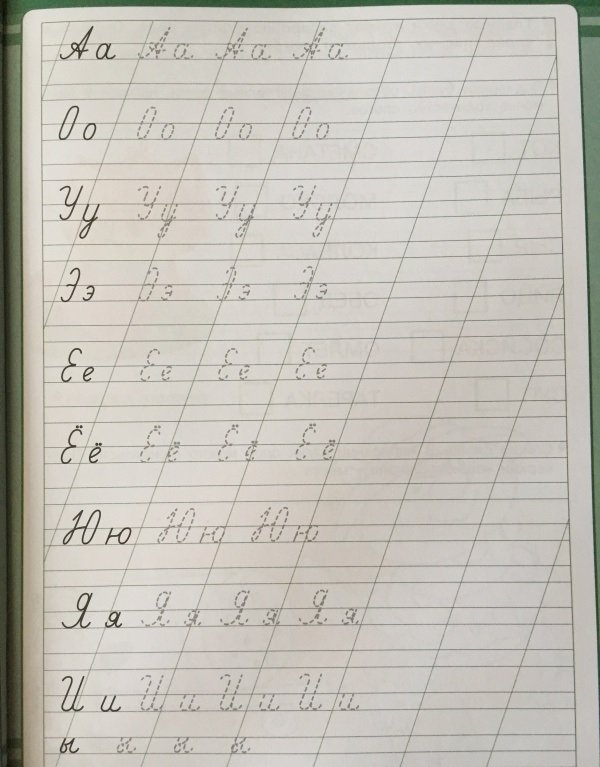 Аа Аа Аа Аа
Оо Оо Оо Оо
Уу Уу Уу Уу
Ээ Ээ Ээ Ээ
Ее Ее Ее Ее
Ёё Ёё Ёё Ёё
Юю Юю Юю
Яя Яя Яя Яя
Ии Ии Ии Ии
ы ы ы ы